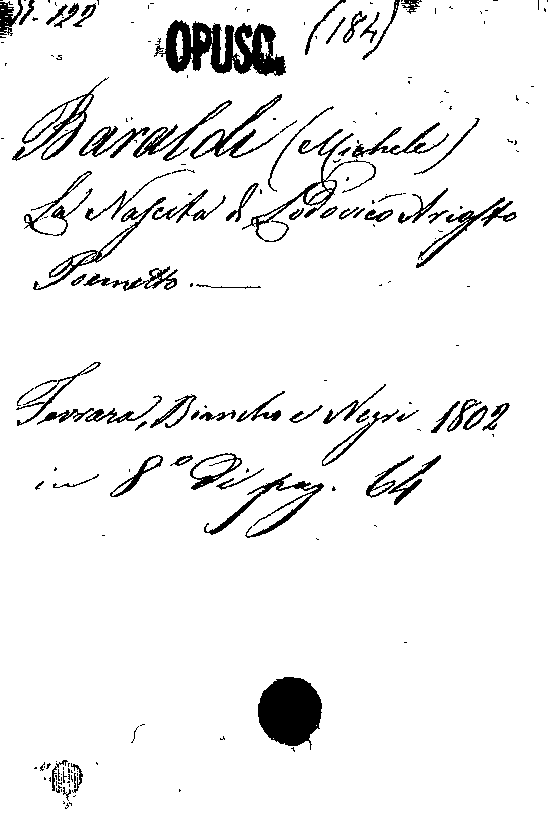 122
OPUSC. (184)
Baraldi (Michele)
La Nascita di Lodovico Ariosto
Poemetto.
Ferrara, Bianchi e Negri 1802
in 8° di pag. 64